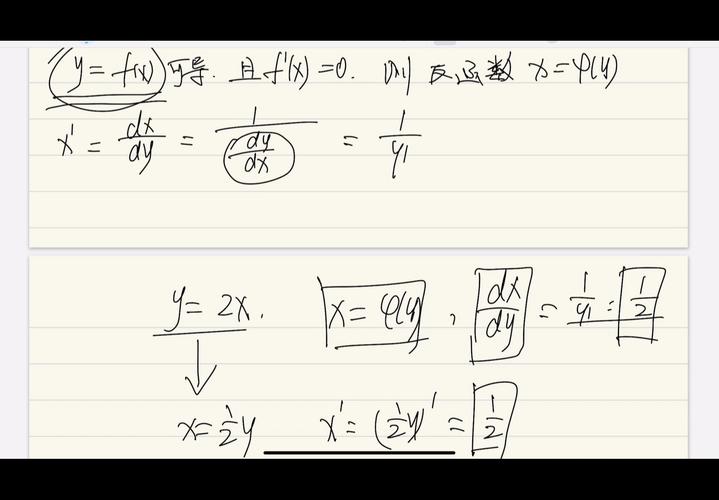 y = f(x) 可导. 且 f'(x) = 0. 则 反函数 x = φ(y)
x' = dx/dy = 1/(dy/dx) = 1/y'
y = 2x. x = φ(y) , dx/dy = 1/y' = 1/2
x = 1/2 y x' = (1/2 y)' = 1/2